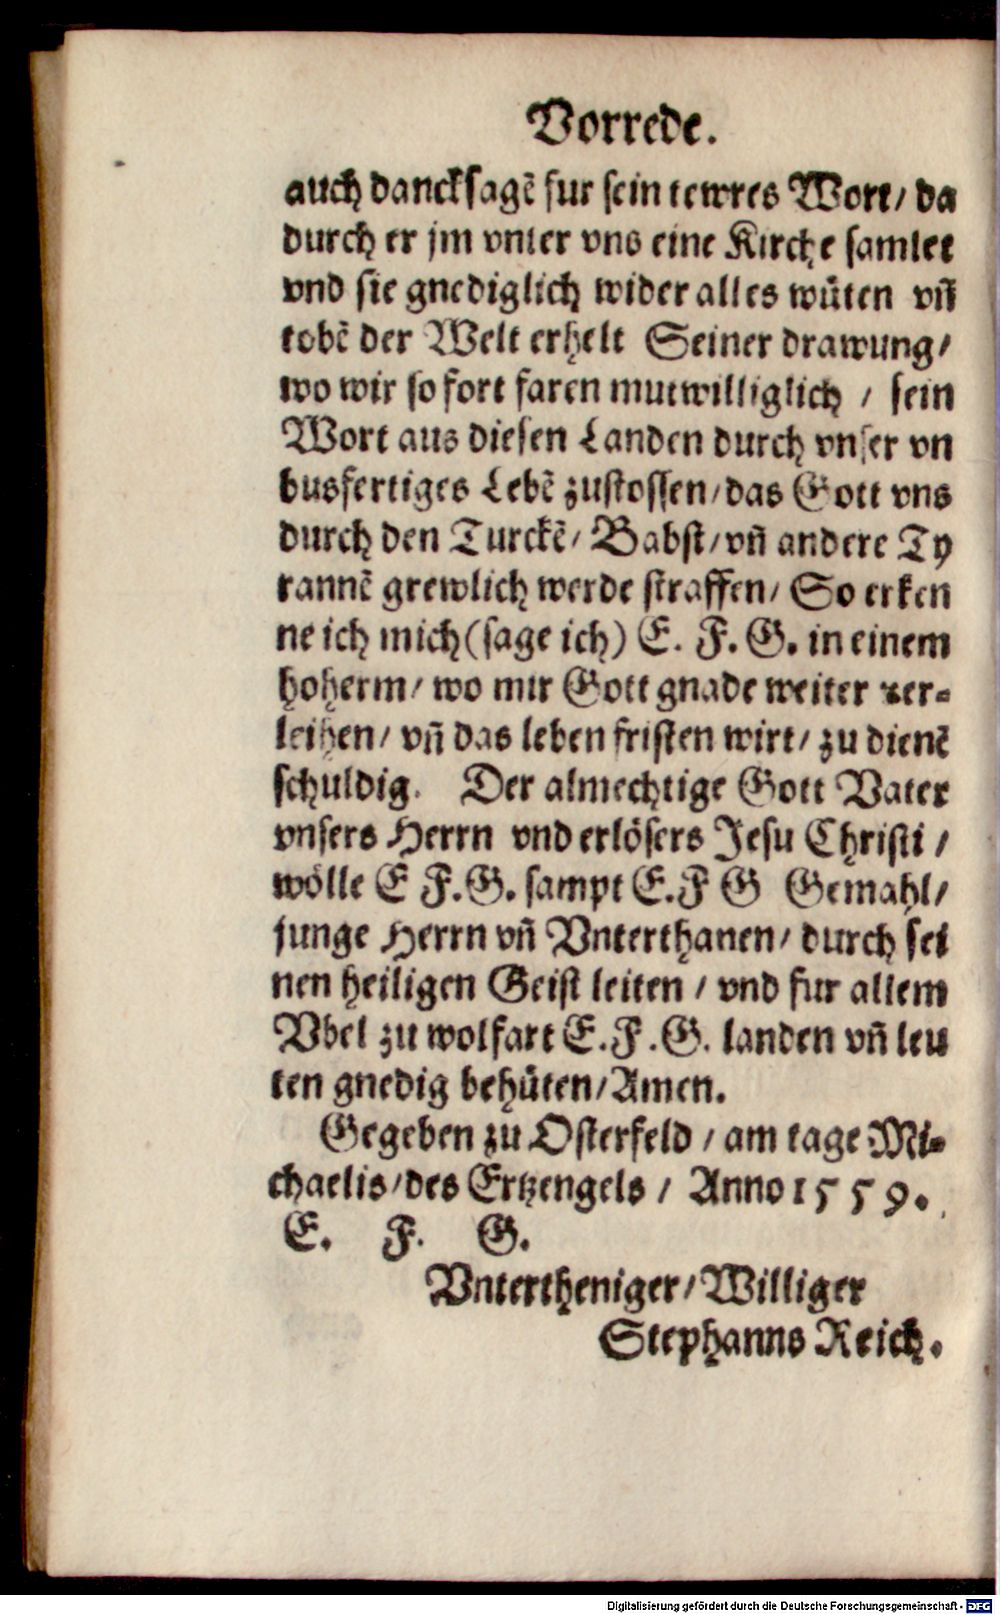 Vorrede.
auch dancksagē fur sein tewres Wort/ da
durch er jm vnter vns eine Kirche samlet
vnd sie gnediglich wider alles wüten vñ
tobē der Welt erhelt Seiner drawung/
wo wir so fort faren mutwilliglich / sein
Wort aus diesen Landen durch vnser vn
busfertiges Lebē zustossen/das Gott vns
durch den Turckē/ Babst/vñ andere Ty
rannē grewlich werde straffen/ So erken
ne ich mich (sage ich) E. F. G. in einem
hoherm/ wo mir Gott gnade weiter ver-
leihen/ vñ das leben fristen wirt/ zu dienē
schuldig. Der almechtige Gott Vater
vnsers Herrn vnd erlösers Jesu Christi /
wölle E F. G. sampt E.F G Gemahl/
junge Herrn vñ Vnterthanen/ durch sei
nen heiligen Geist leiten / vnd fur allem
Vbel zu wolfart E. F. G. landen vñ leu
ten gnedig behüten/Amen.
Gegeben zu Osterfeld / am tage Mi-
chaelis/des Ertzengels / Anno 1559.
E. F. G.
Vntertheniger/Williger
Stephanns Reich.
Digitalisierung gefördert durch die Deutsche Forschungsgemeinschaft - DFG